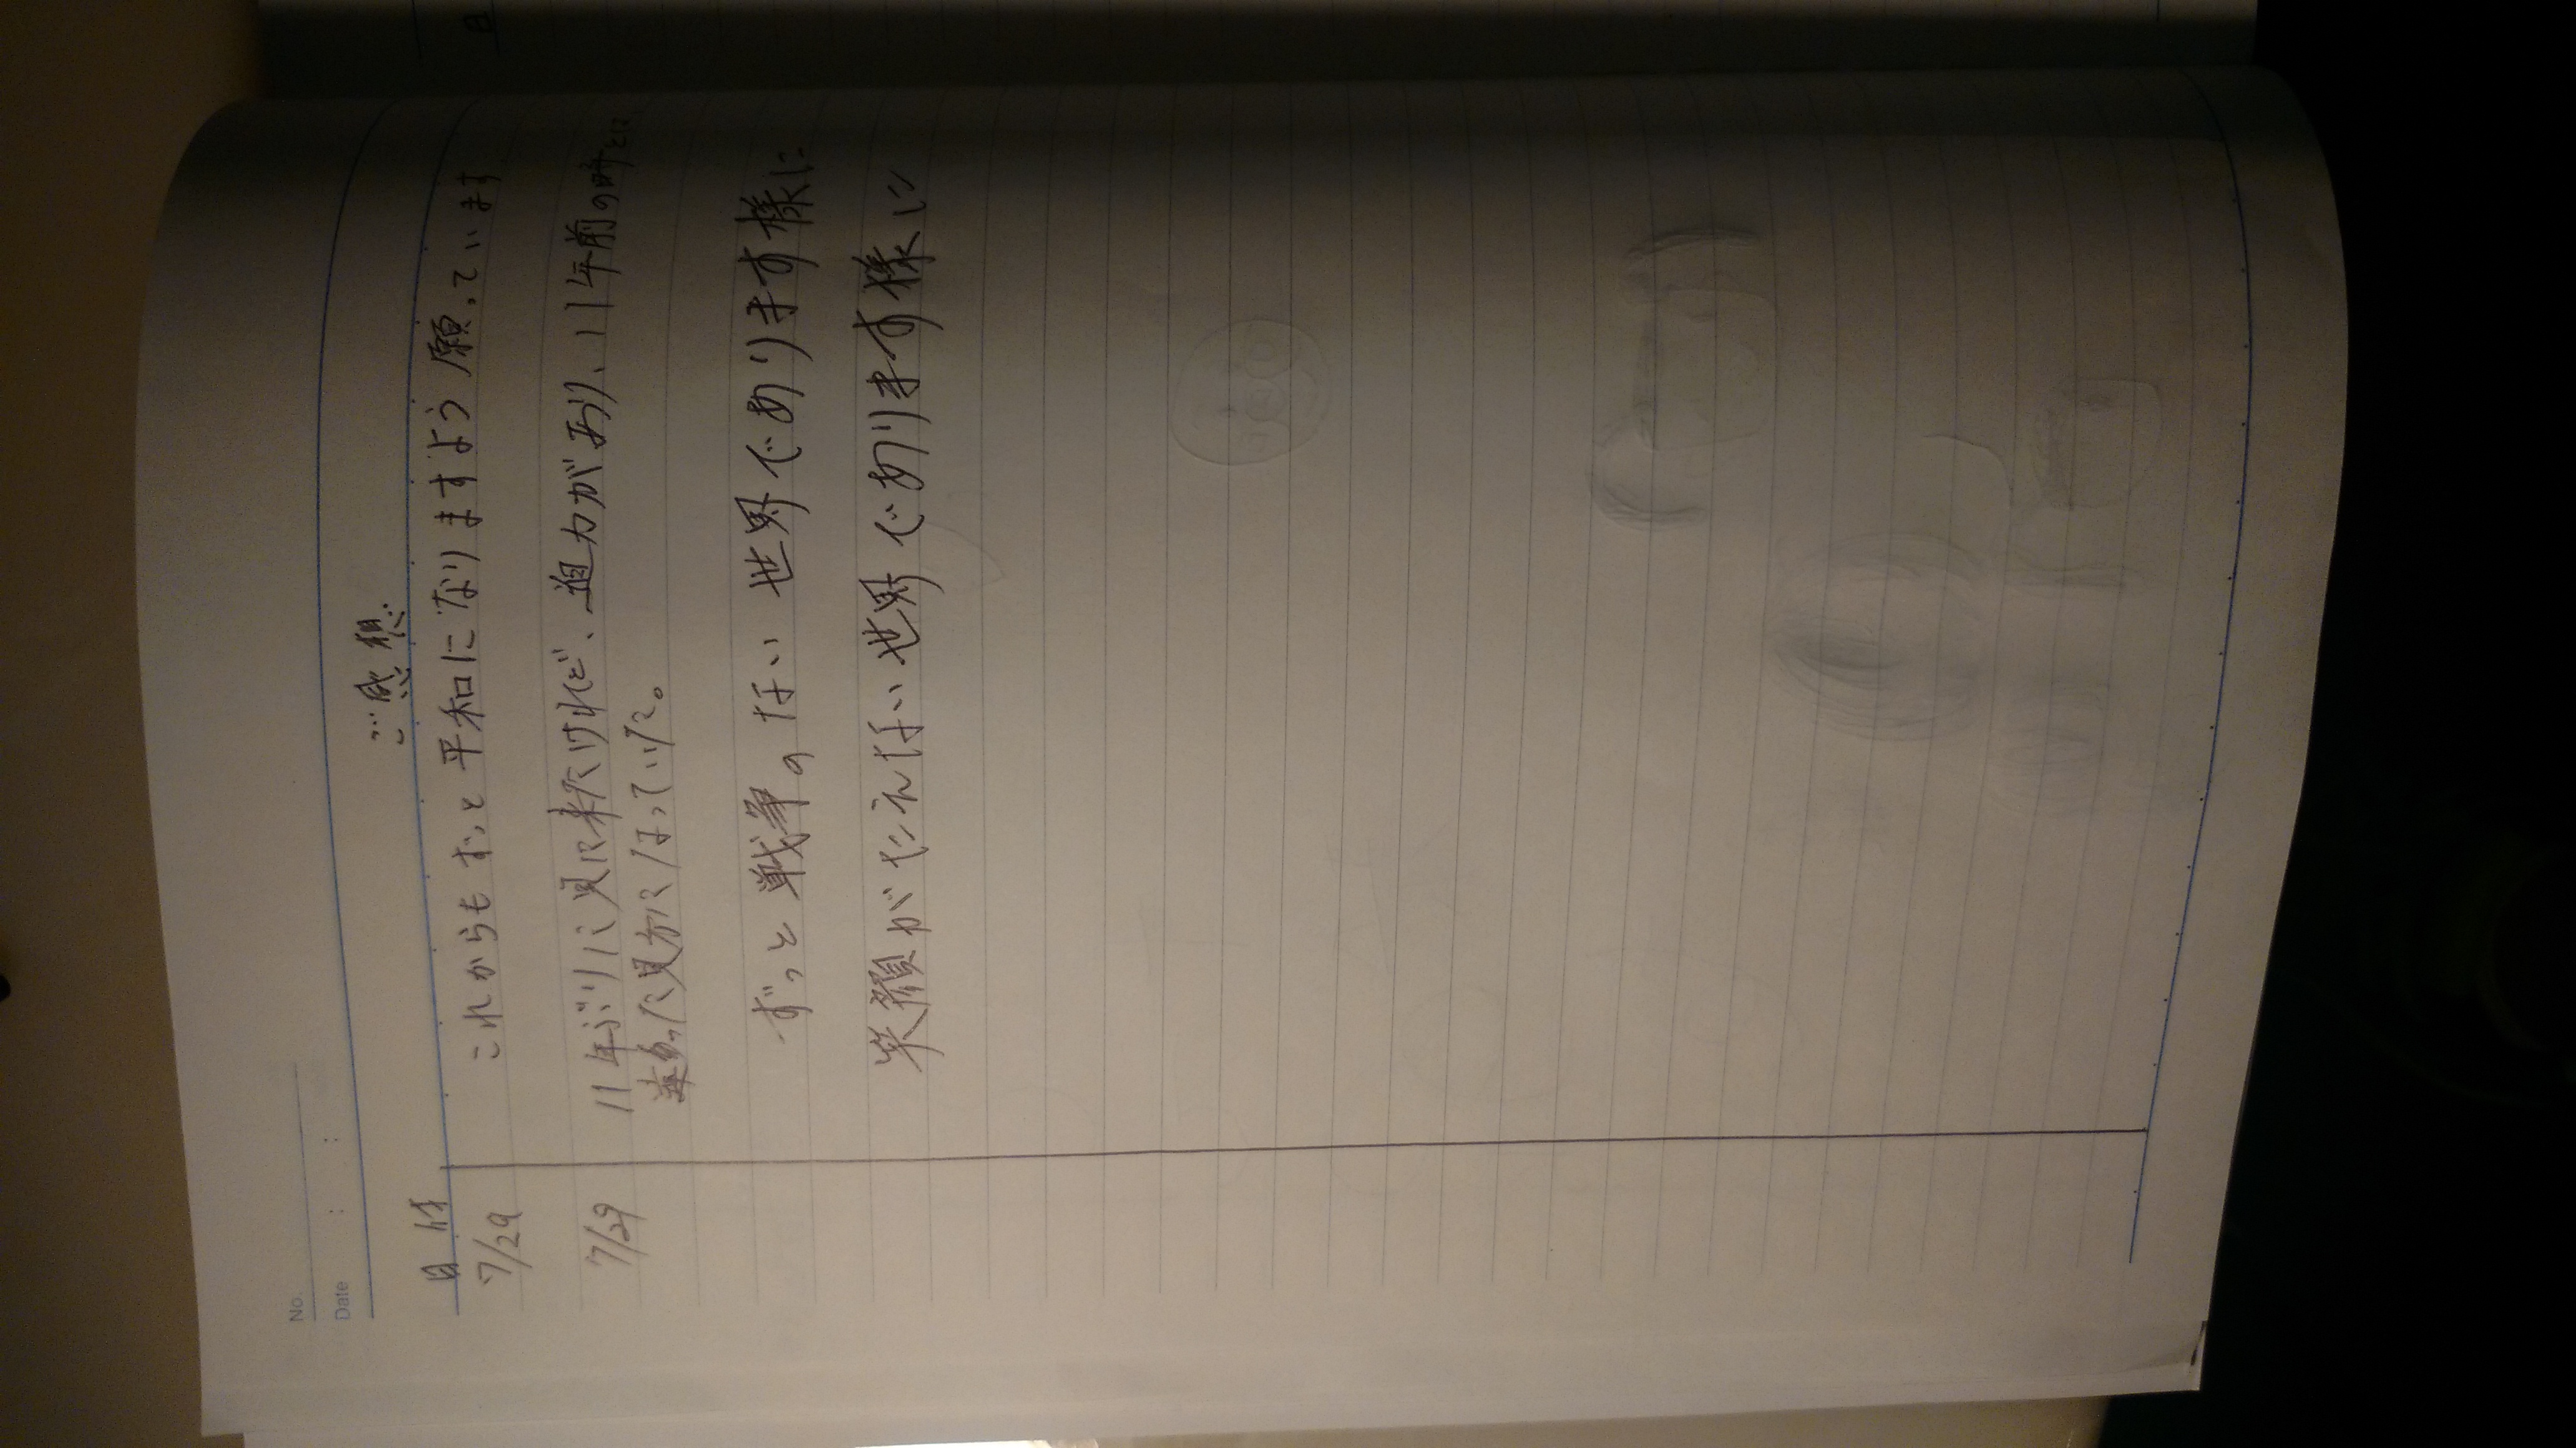 No.
Date : :
日付 ご感想
7/29 これからもずっと平和になりますよう願っています
7/29 11年ぶりに見に来たけれど、迫力があり、11年前の時とは
違った見方になっていた。
ずっと戦争のない世界でありますす様に
笑顔がたえない世界でありますす様に